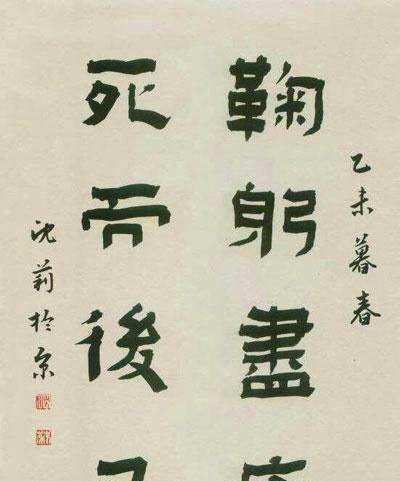 乙未暮春
鞠躬盡
死而後
沈莉於京